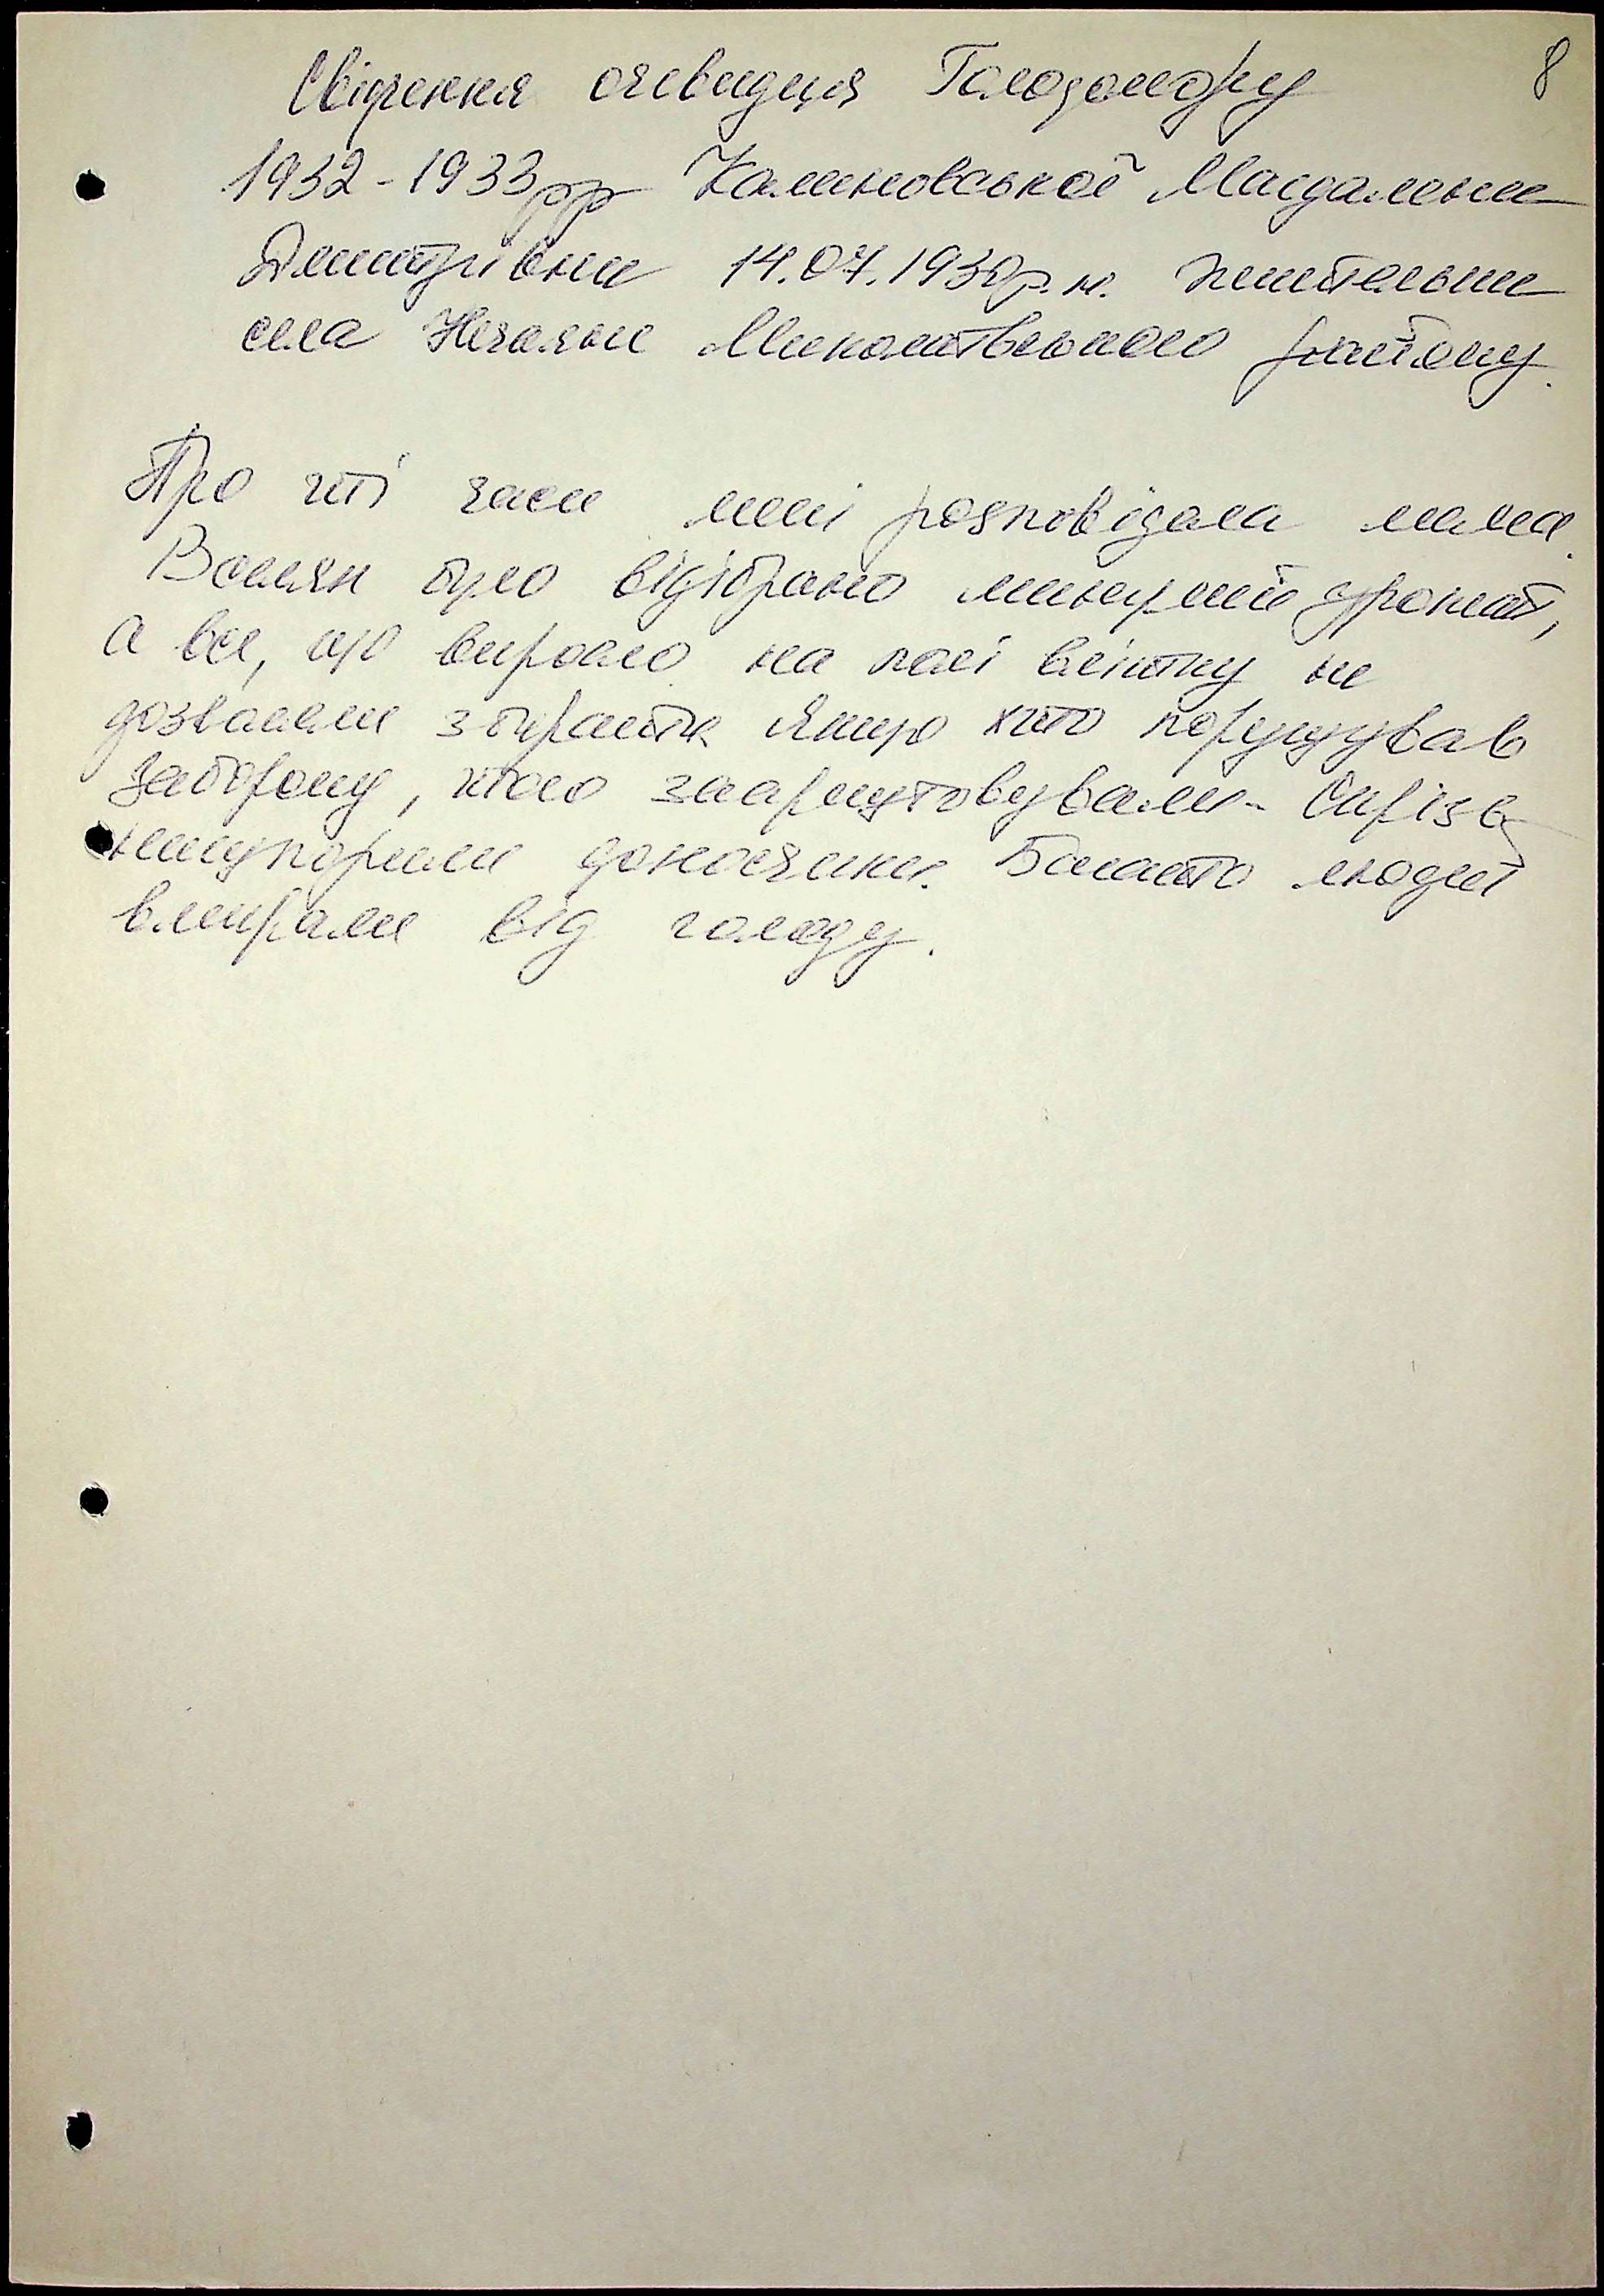 8
Свідчення очевидця Голодомору
1932-1933рр Калиновської Магдалени
Дмитрівни 14.07.1930р.н. жительни
села Нечаяне Миколаївського району.
Про ті часи мені розповідала мама.
було відібрано минулий урожай,
а все, що виросло на полі влітку не
дозваляли збирати Якщо хто порушував
заборону, того заарештовували.
доносчики. Багато людей
вмирали від голоду.